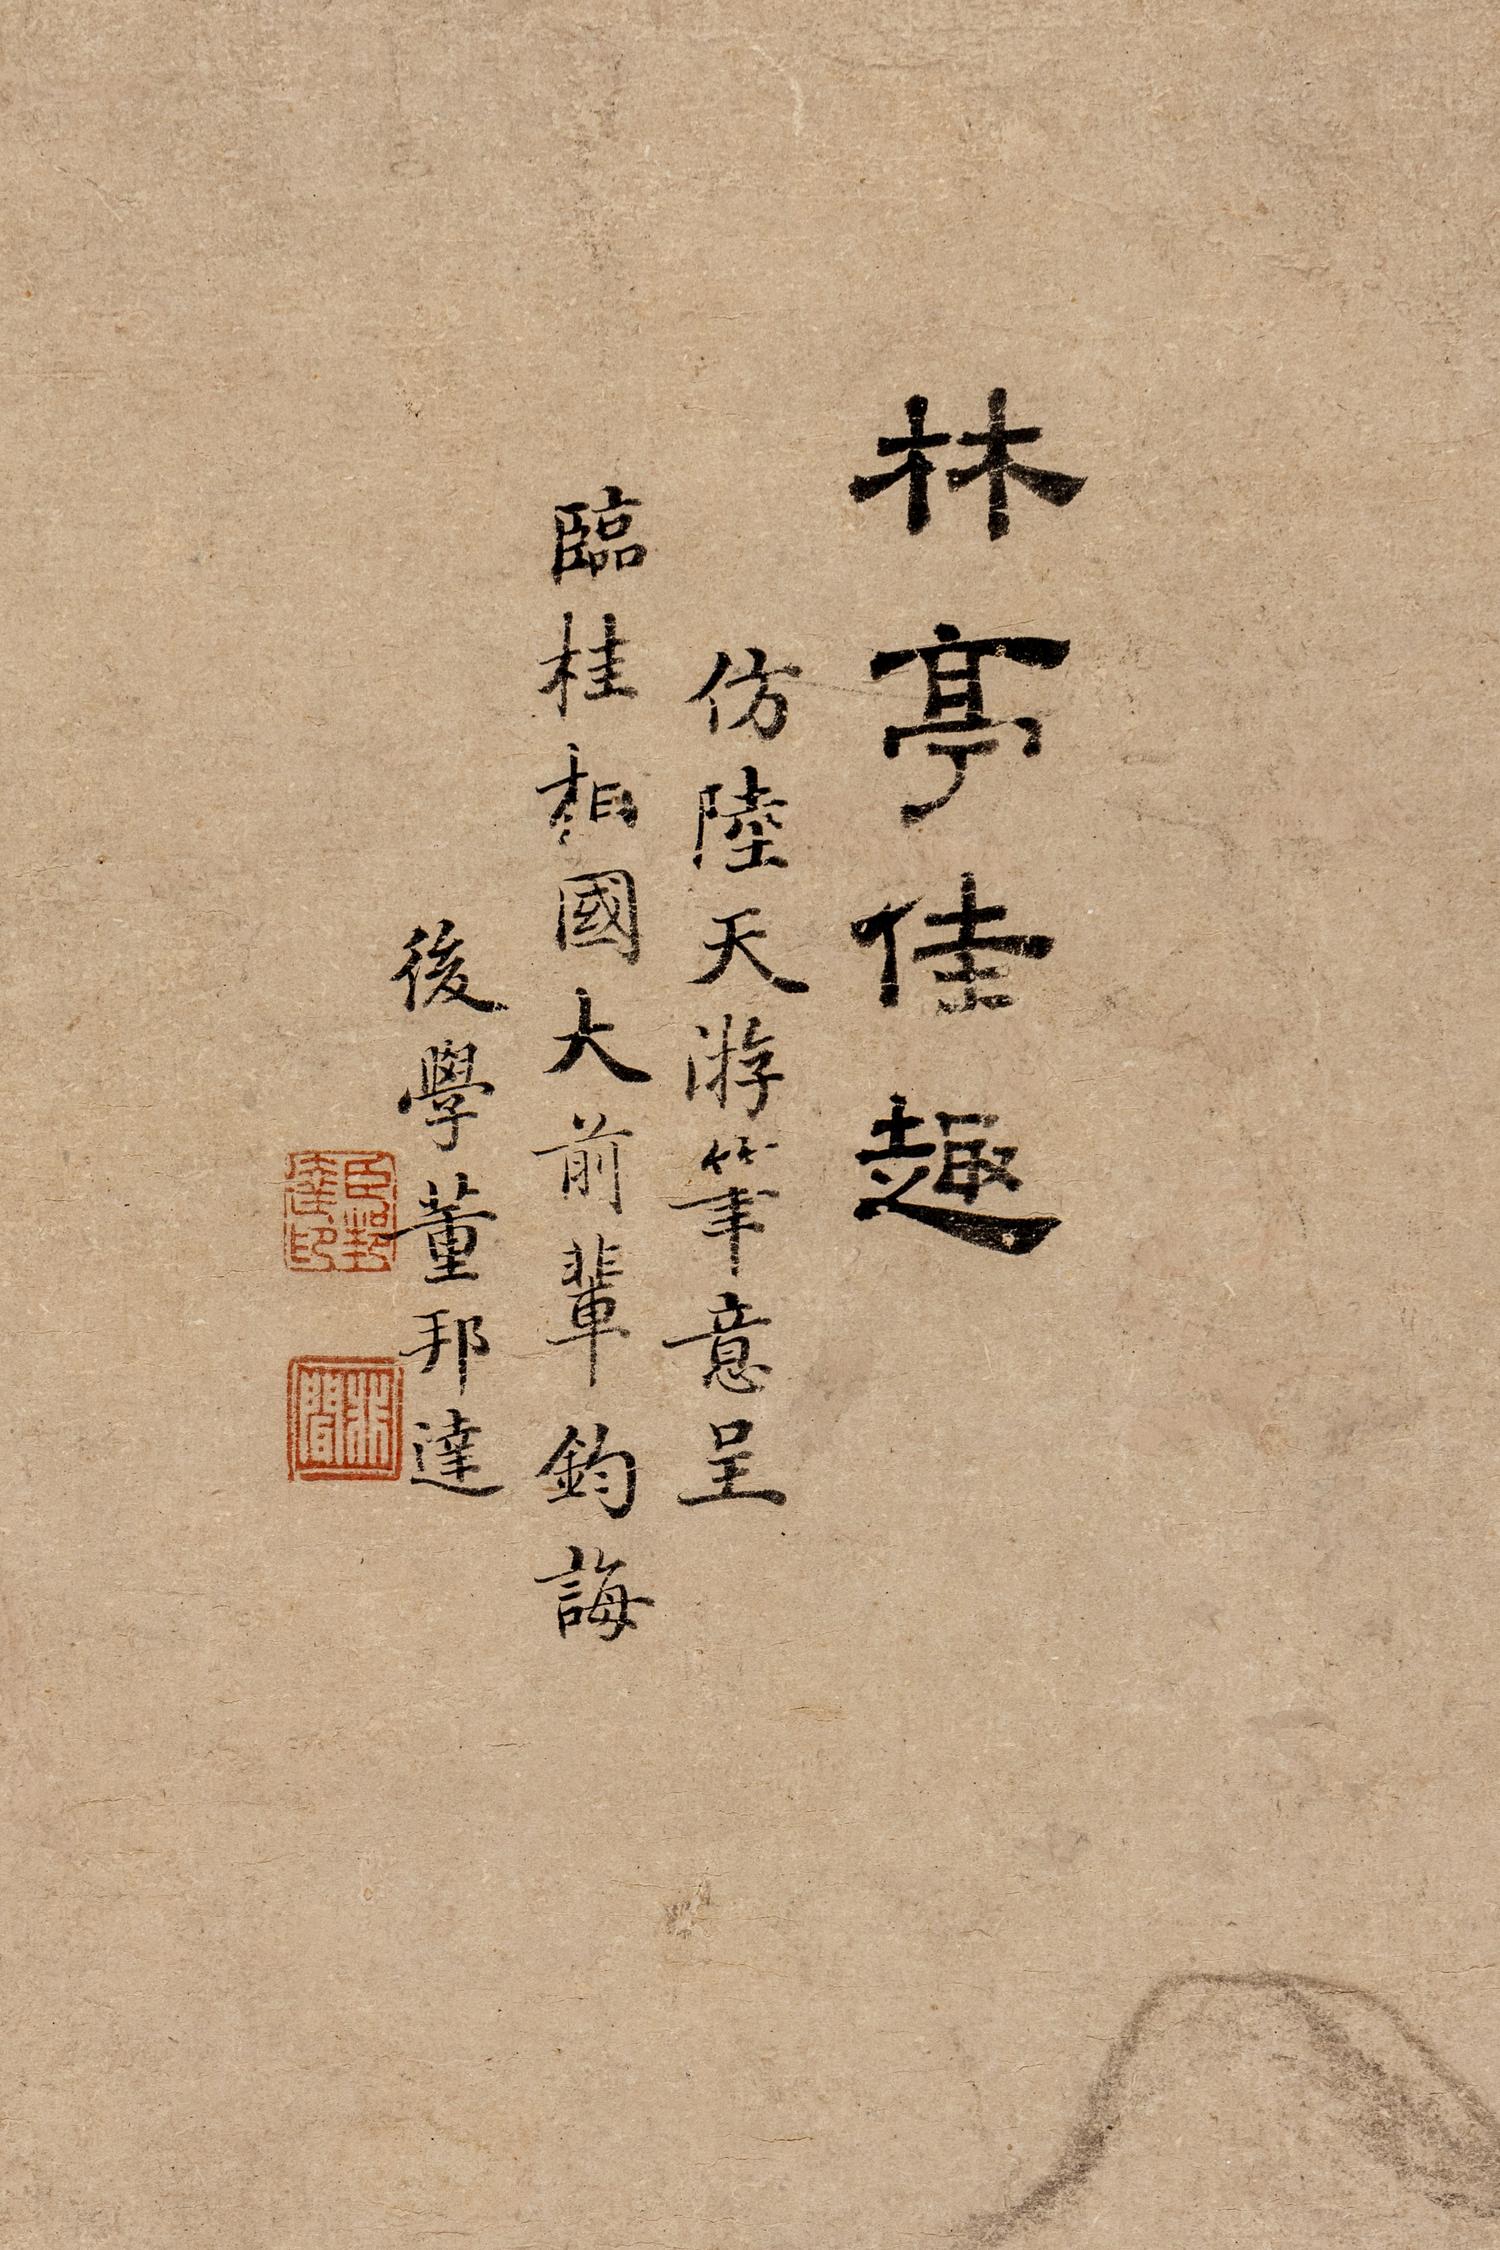 林亭佳趣
仿陸天游筆意呈
臨桂相國大前輩鈞誨
後學董邦達
臣邦達印